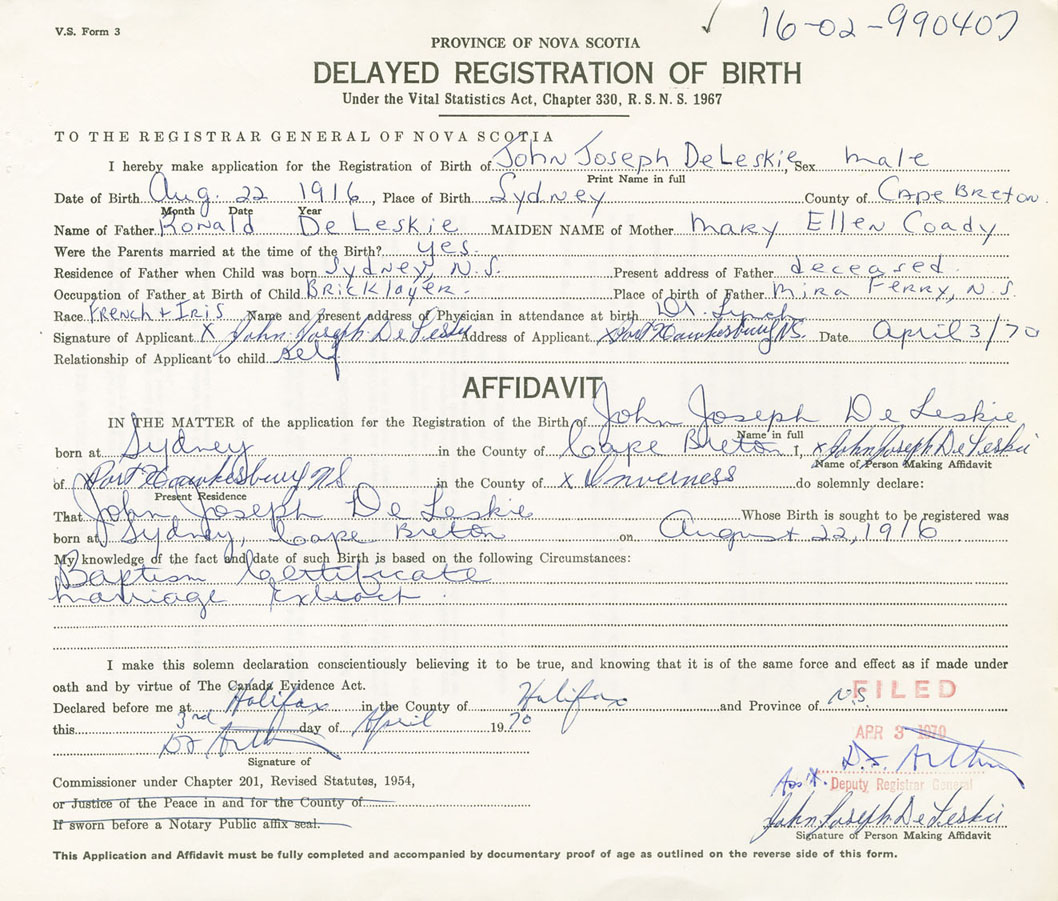 V.S. Form 3
✓ 16-02-990407
PROVINCE OF NOVA SCOTIA
DELAYED REGISTRATION OF BIRTH
Under the Vital Statistics Act, Chapter 330, R.S.N.S. 1967
TO THE REGISTRAR GENERAL OF NOVA SCOTIA
I hereby make application for the Registration of Birth of John Joseph DeLeskie, Sex male
Print Name in full
Date of Birth Aug. 22 1916, Place of Birth Sydney County of Cape Breton.
Month Date Year
Name of Father Ronald DeLeskie MAIDEN NAME of Mother Mary Ellen Coady
Were the Parents married at the time of the Birth? yes.
Residence of Father when Child was born Sydney, N.S. Present address of Father deceased.
Occupation of Father at Birth of Child Bricklayer. Place of birth of Father Mira Ferry, N.S.
Race French + Iris Name and present address of Physician in attendance at birth Dr. Lynch
Signature of Applicant X John Joseph DeLeskie Address of Applicant X Port Hawkesbury NS. Date April 3/70
Relationship of Applicant to child self
AFFIDAVIT
IN THE MATTER of the application for the Registration of the Birth of John Joseph DeLeskie
Name in full
born at Sydney in the County of Cape Breton I, x John Joseph DeLeskie
Name of Person Making Affidavit
of Port Hawkesbury NS in the County of x Inverness do solemnly declare:
Present Residence
That John Joseph DeLeskie Whose Birth is sought to be registered was
born at Sydney, Cape Breton on August 22, 1916
My knowledge of the fact and date of such Birth is based on the following Circumstances:
Baptism Certificate
Marriage Extract.
I make this solemn declaration conscientiously believing it to be true, and knowing that it is of the same force and effect as if made under
oath and by virtue of The Canada Evidence Act.
Declared before me at Halifax in the County of Halifax and Province of N.S.
FILED
this 3rd day of April 1970
APR 3 1970
Signature of
Commissioner under Chapter 201, Revised Statutes, 1954,
Ass't. Deputy Registrar General
or Justice of the Peace in and for the County of
John Joseph DeLeskie
If sworn before a Notary Public affix seal.
Signature of Person Making Affidavit
This Application and Affidavit must be fully completed and accompanied by documentary proof of age as outlined on the reverse side of this form.